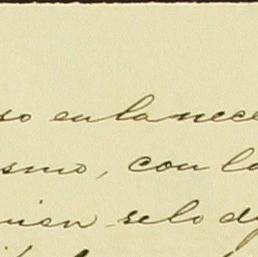 so en la nece
smo, con la
uien se lo d